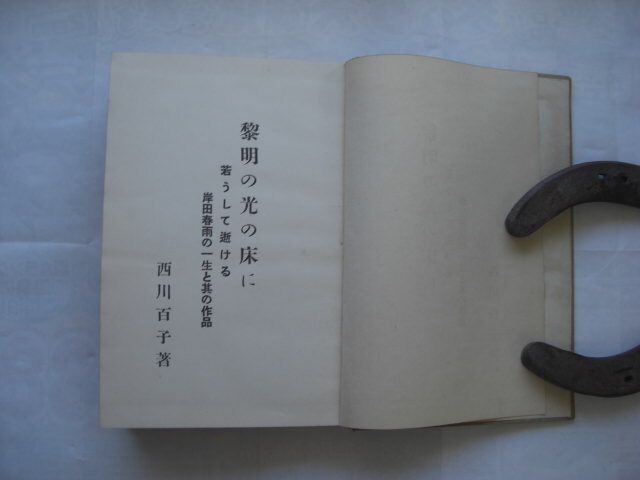 黎明の光の床に
若うして逝ける
岸田春雨の一生と其の作品
西川百子著